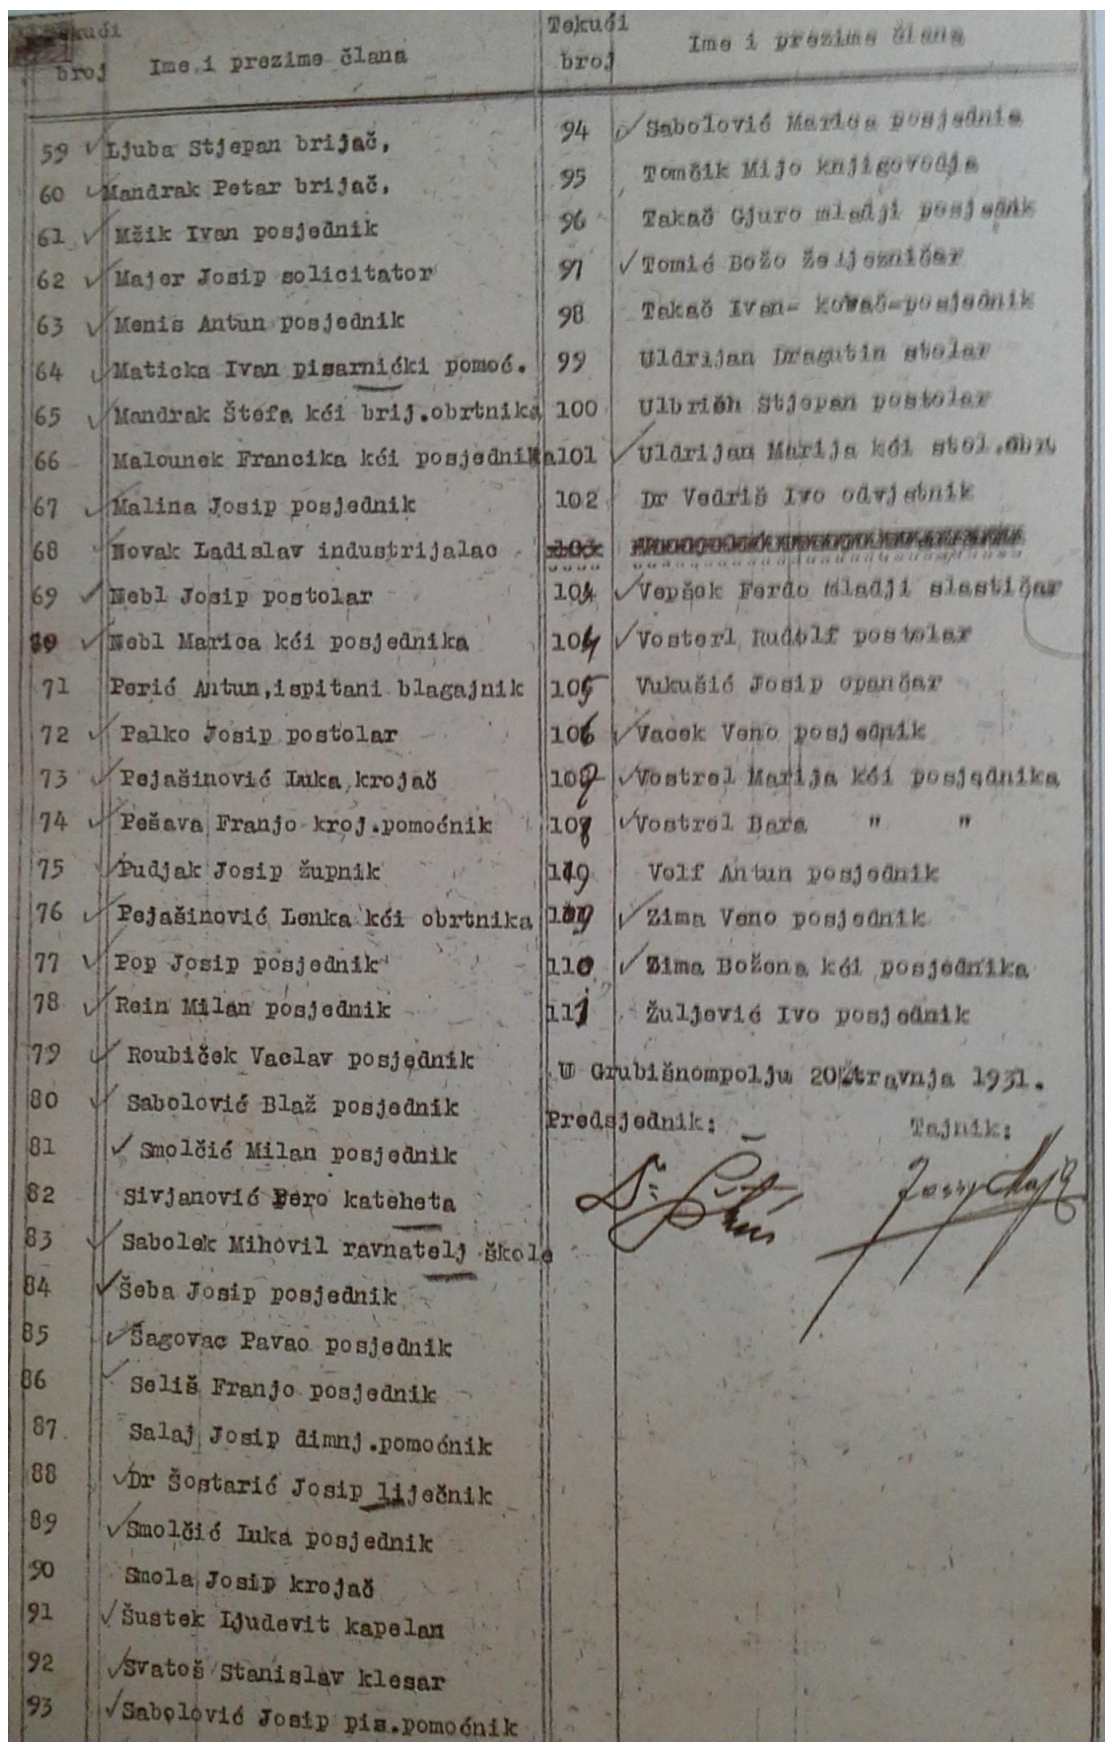 Tekući
broj Ime i prezime člana
59 Ljuba Stjepan brijač,
60 Mandrak Petar brijač,
61 Mžik Ivan posjednik
62 Majer Josip solicitator
63 Menis Antun posjednik
64 Maticka Ivan pisarnićki pomoć.
65 Mandrak Štefa kći brij.obrtnika
66 Malounek Francika kći posjednika
67 Malina Josip posjednik
68 Novak Ladislav industrijalac
69 Nebl Josip postolar
Nebl Marica kći posjednika
71 Perić Antun,ispitani blagajnik
72 Palko Josip postolar
73 Pejašinović Luka krojač
74 Pešava Franjo kroj.pomoćnik
75 Pudjak Josip župnik
76 Pejašinović Lenka kći obrtnika
77 Pop Josip posjednik
78 Rein Milan posjednik
79 Roubiček Vaclav posjednik
80 Sabolović Blaž posjednik
81 Smolčić Milan posjednik
82 Sivjanović Pero kateheta
83 Sabolek Mihovil ravnatelj škole
84 Šeba Josip posjednik
85 Šagovac Pavao posjednik
86 Seliš Franjo posjednik
87 Salaj Josip dimnj.pomoćnik
88 Dr Šostarić Josip liječnik
89 Smolčić Luka posjednik
90 Smola Josip krojač
91 Šustek Ljudevit kapelan
92 Svatoš Stanislav klesar
93 Sabolović Josip pis.pomoćnik
Tekući
broj Ime i prezime člana
94 Sabolović Marica posjednia
95 Tomčik Mijo knjigovodja
96 Takač Gjuro mladji posjednik
97 Tomić Božo željezničar
98 Takač Ivan- kovač-posjednik
99 Uldrijan Dragutin stolar
100 Ulbrich Stjepan postolar
101 Uldrijan Marija kći stol.obrt
102 Dr Vedriš Ivo odvjetnik
103 Vepšek Ferdo mladji slastičar
104 Vosterl Rudolf postolar
105 Vukušić Josip opančar
106 Vacek Veno posjednik
107 Vostrel Marija kći posjednika
108 Vostrel Bara " "
Volf Antun posjednik
109 Zima Veno posjednik
110 Zima Božena kći posjednika
111 Žuljević Ivo posjednik
U Grubišnompolju 20 travnja 1931.
Predsjednik: Tajnik: